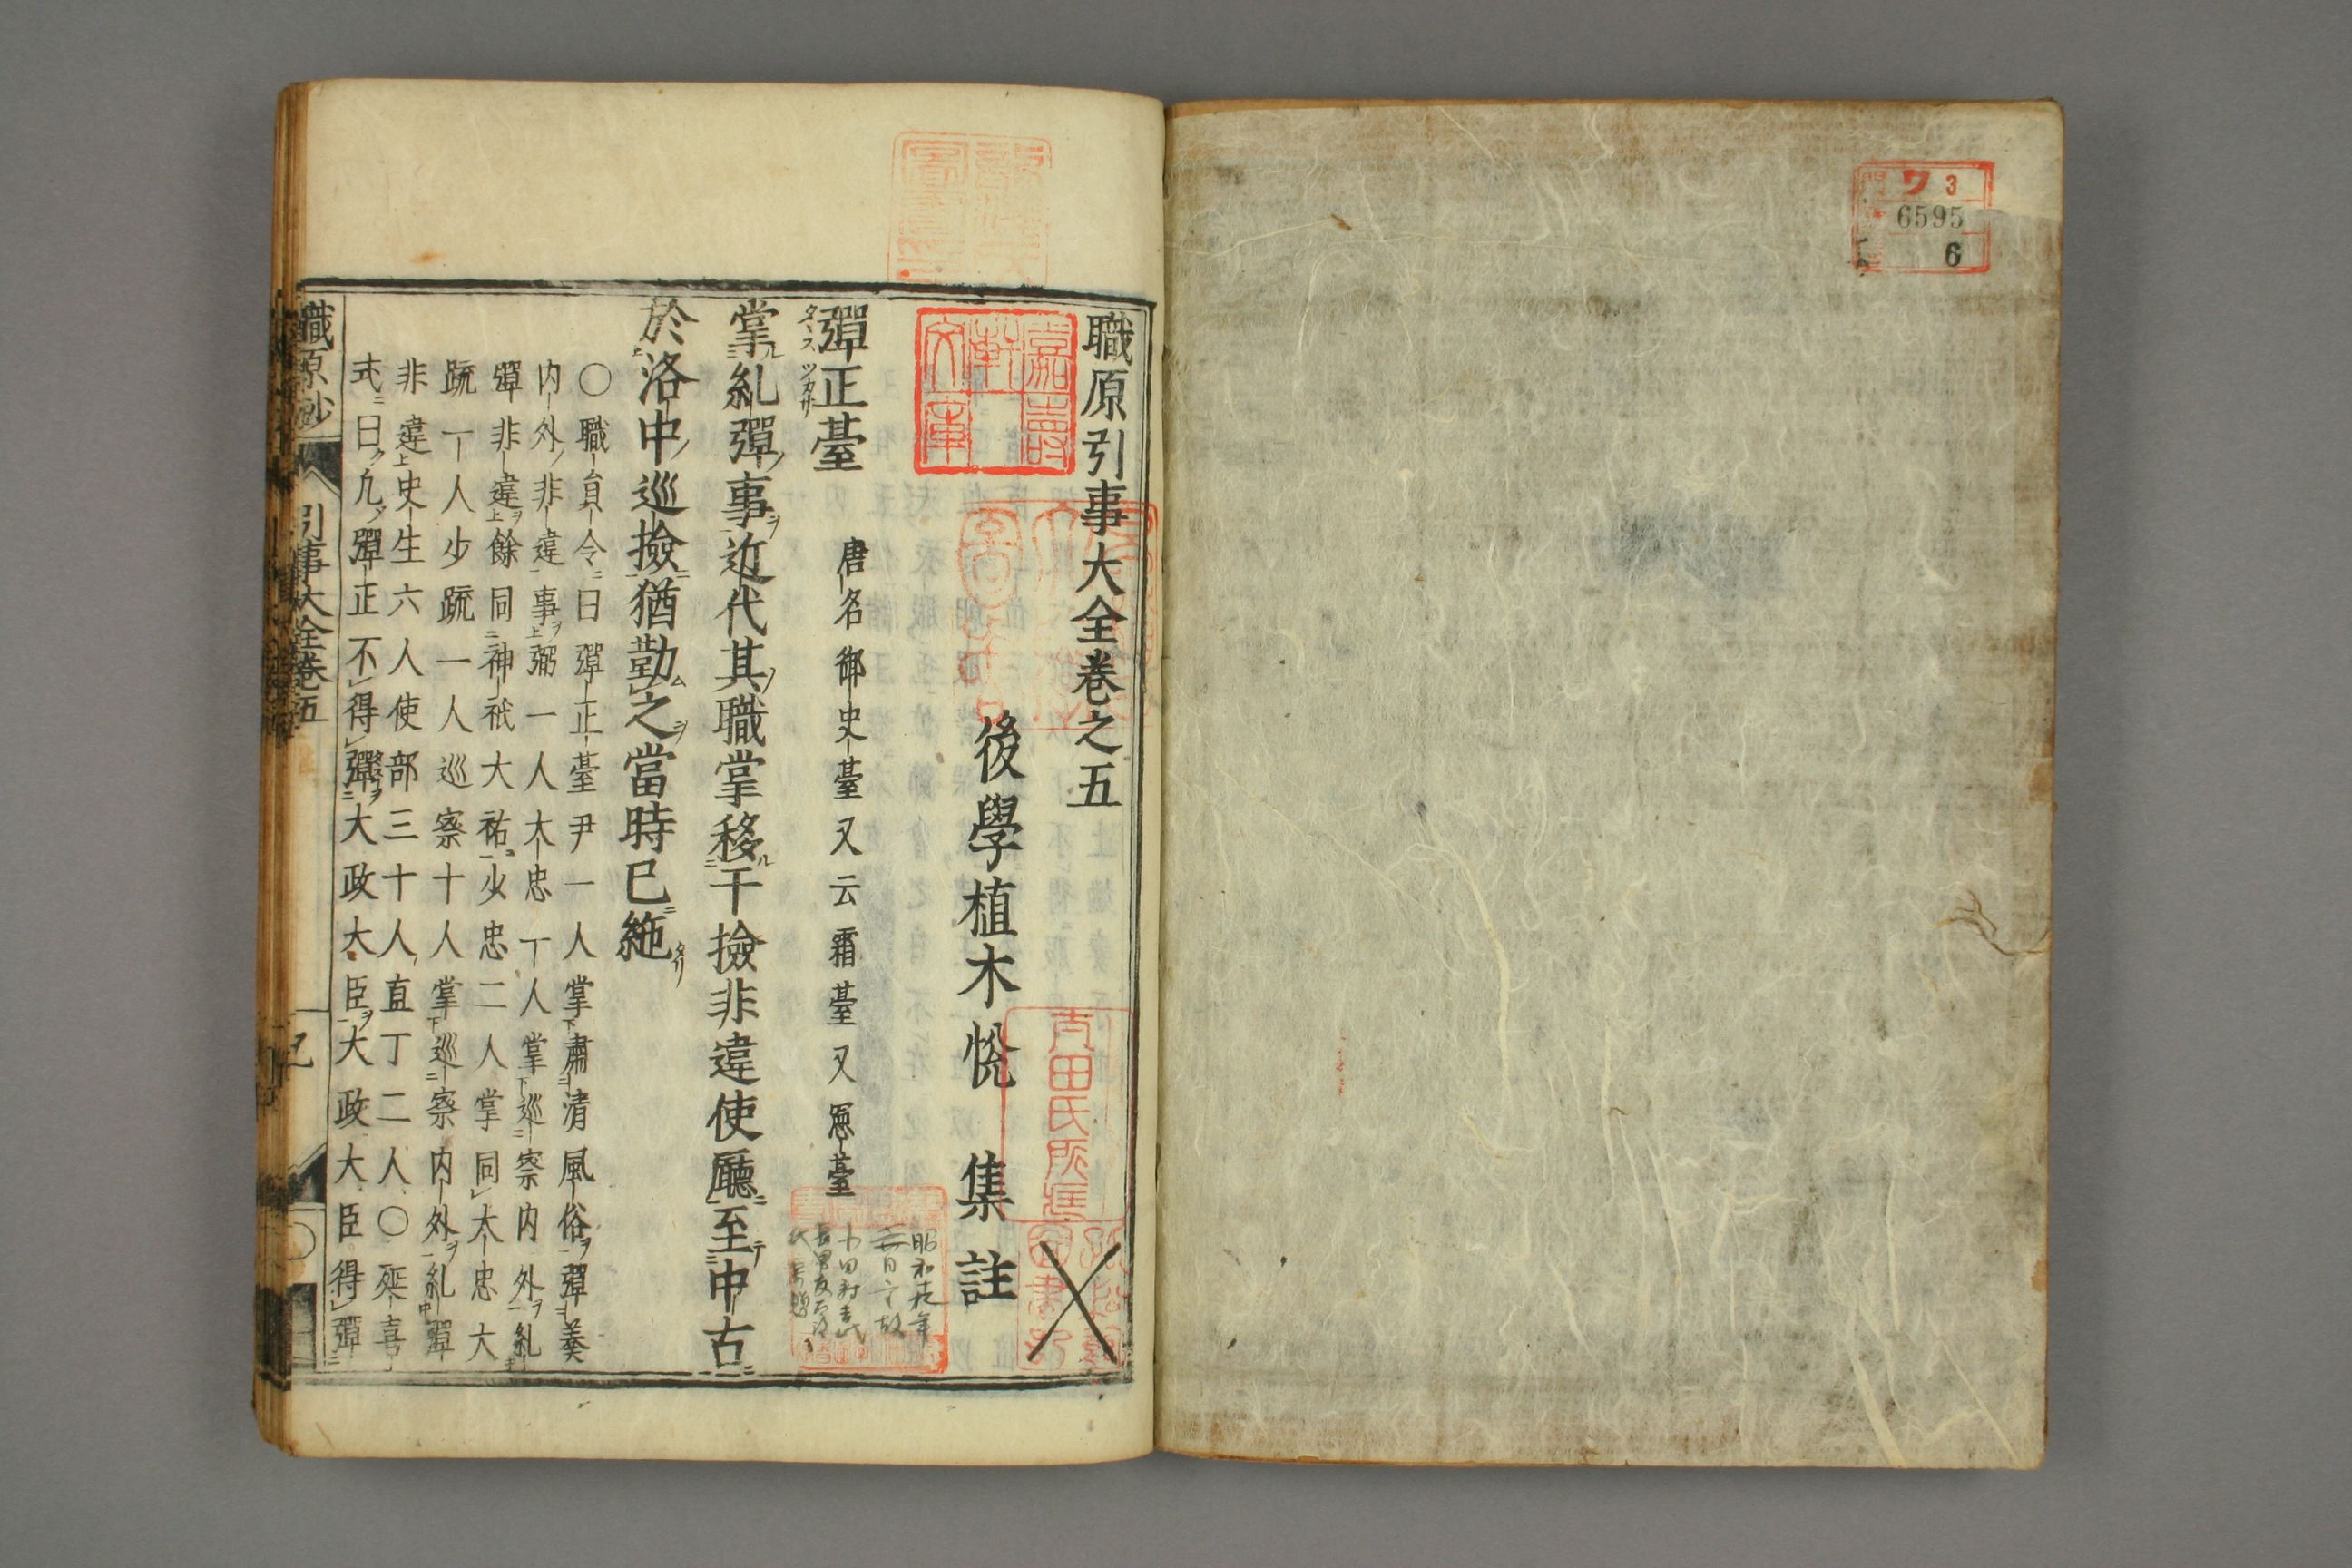 ワ 3
6595
6
職原引事大全卷之五
後學植木悅 集註
嘉壽
軒
文庫
青田氏所藏
彈正臺 唐名御史臺又云霜臺又憲臺
タヽスツカサ
掌糺彈事近代其職掌移干撿非違使廳至中古
於洛中巡撿猶勤之當時已絁
〇職員令曰彈正臺尹一人掌肅清風俗彈奏
内外非違事弼一人大忠一人掌巡察内外糺
彈非違餘同神祇大祐少忠二人掌同大忠大
疏一人少疏一人巡察十人掌巡察内外糺彈
非違史生六人使部三十人直丁二人〇延喜
式曰凡彈正不得彈大政大臣大政大臣得彈
職原鈔 引事大全卷五